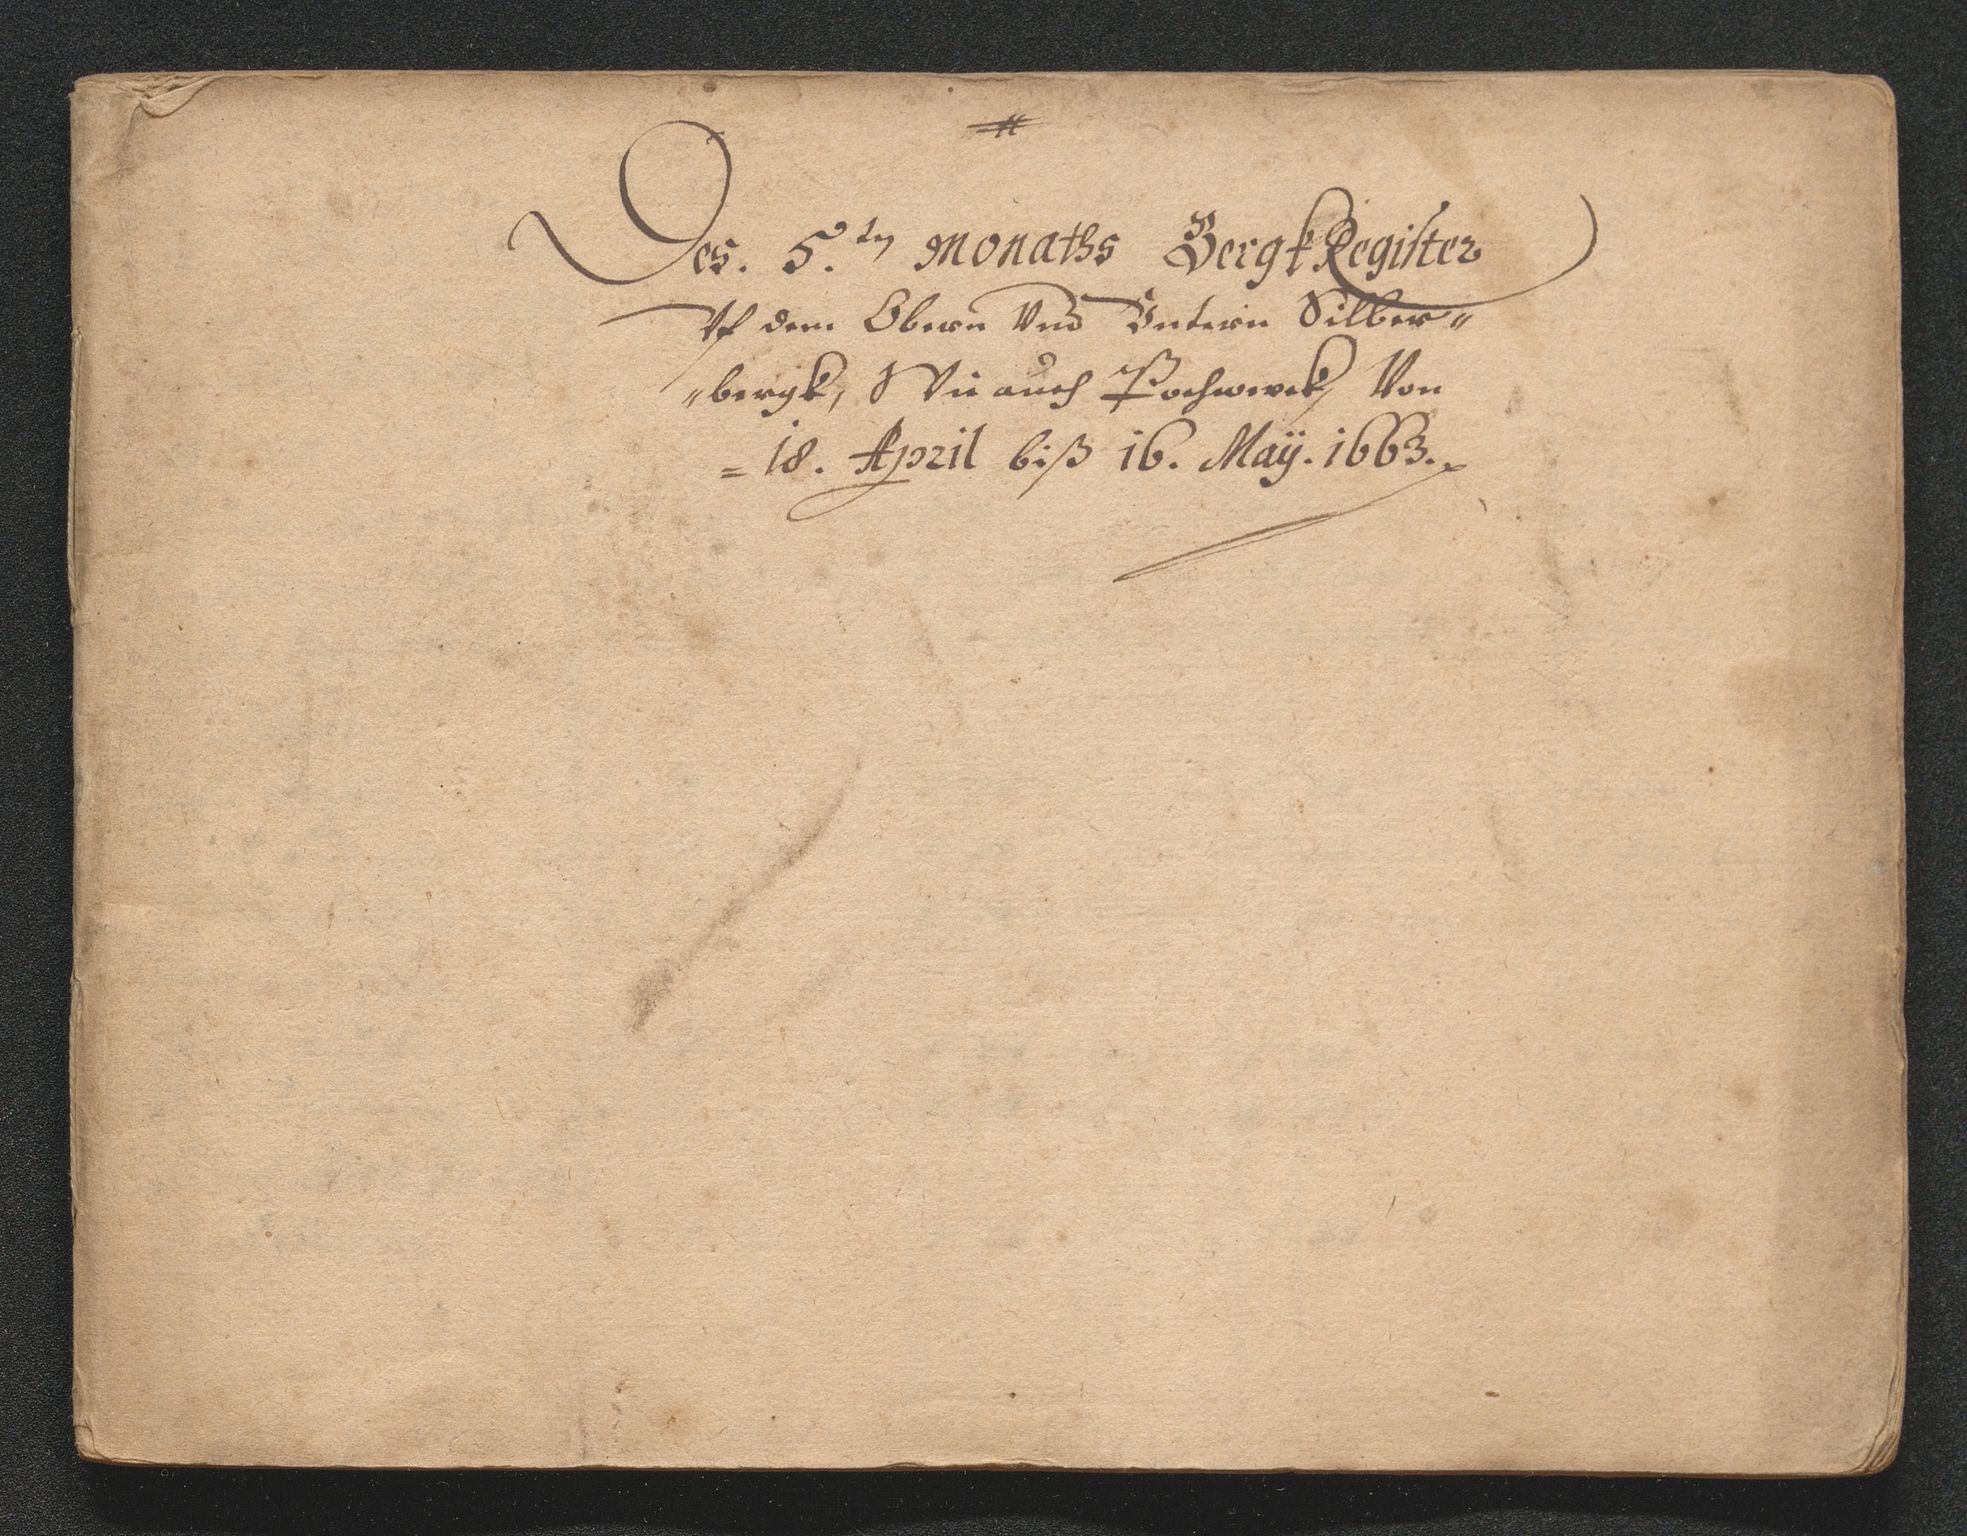 Des. 5.tn Monaths BergkRegister
Uf dem Obern Vnd Vntern Silber〃
〃bergk, Wie auch Pochwerk, Von
= 18. April biß 16. Maÿ. 1663.